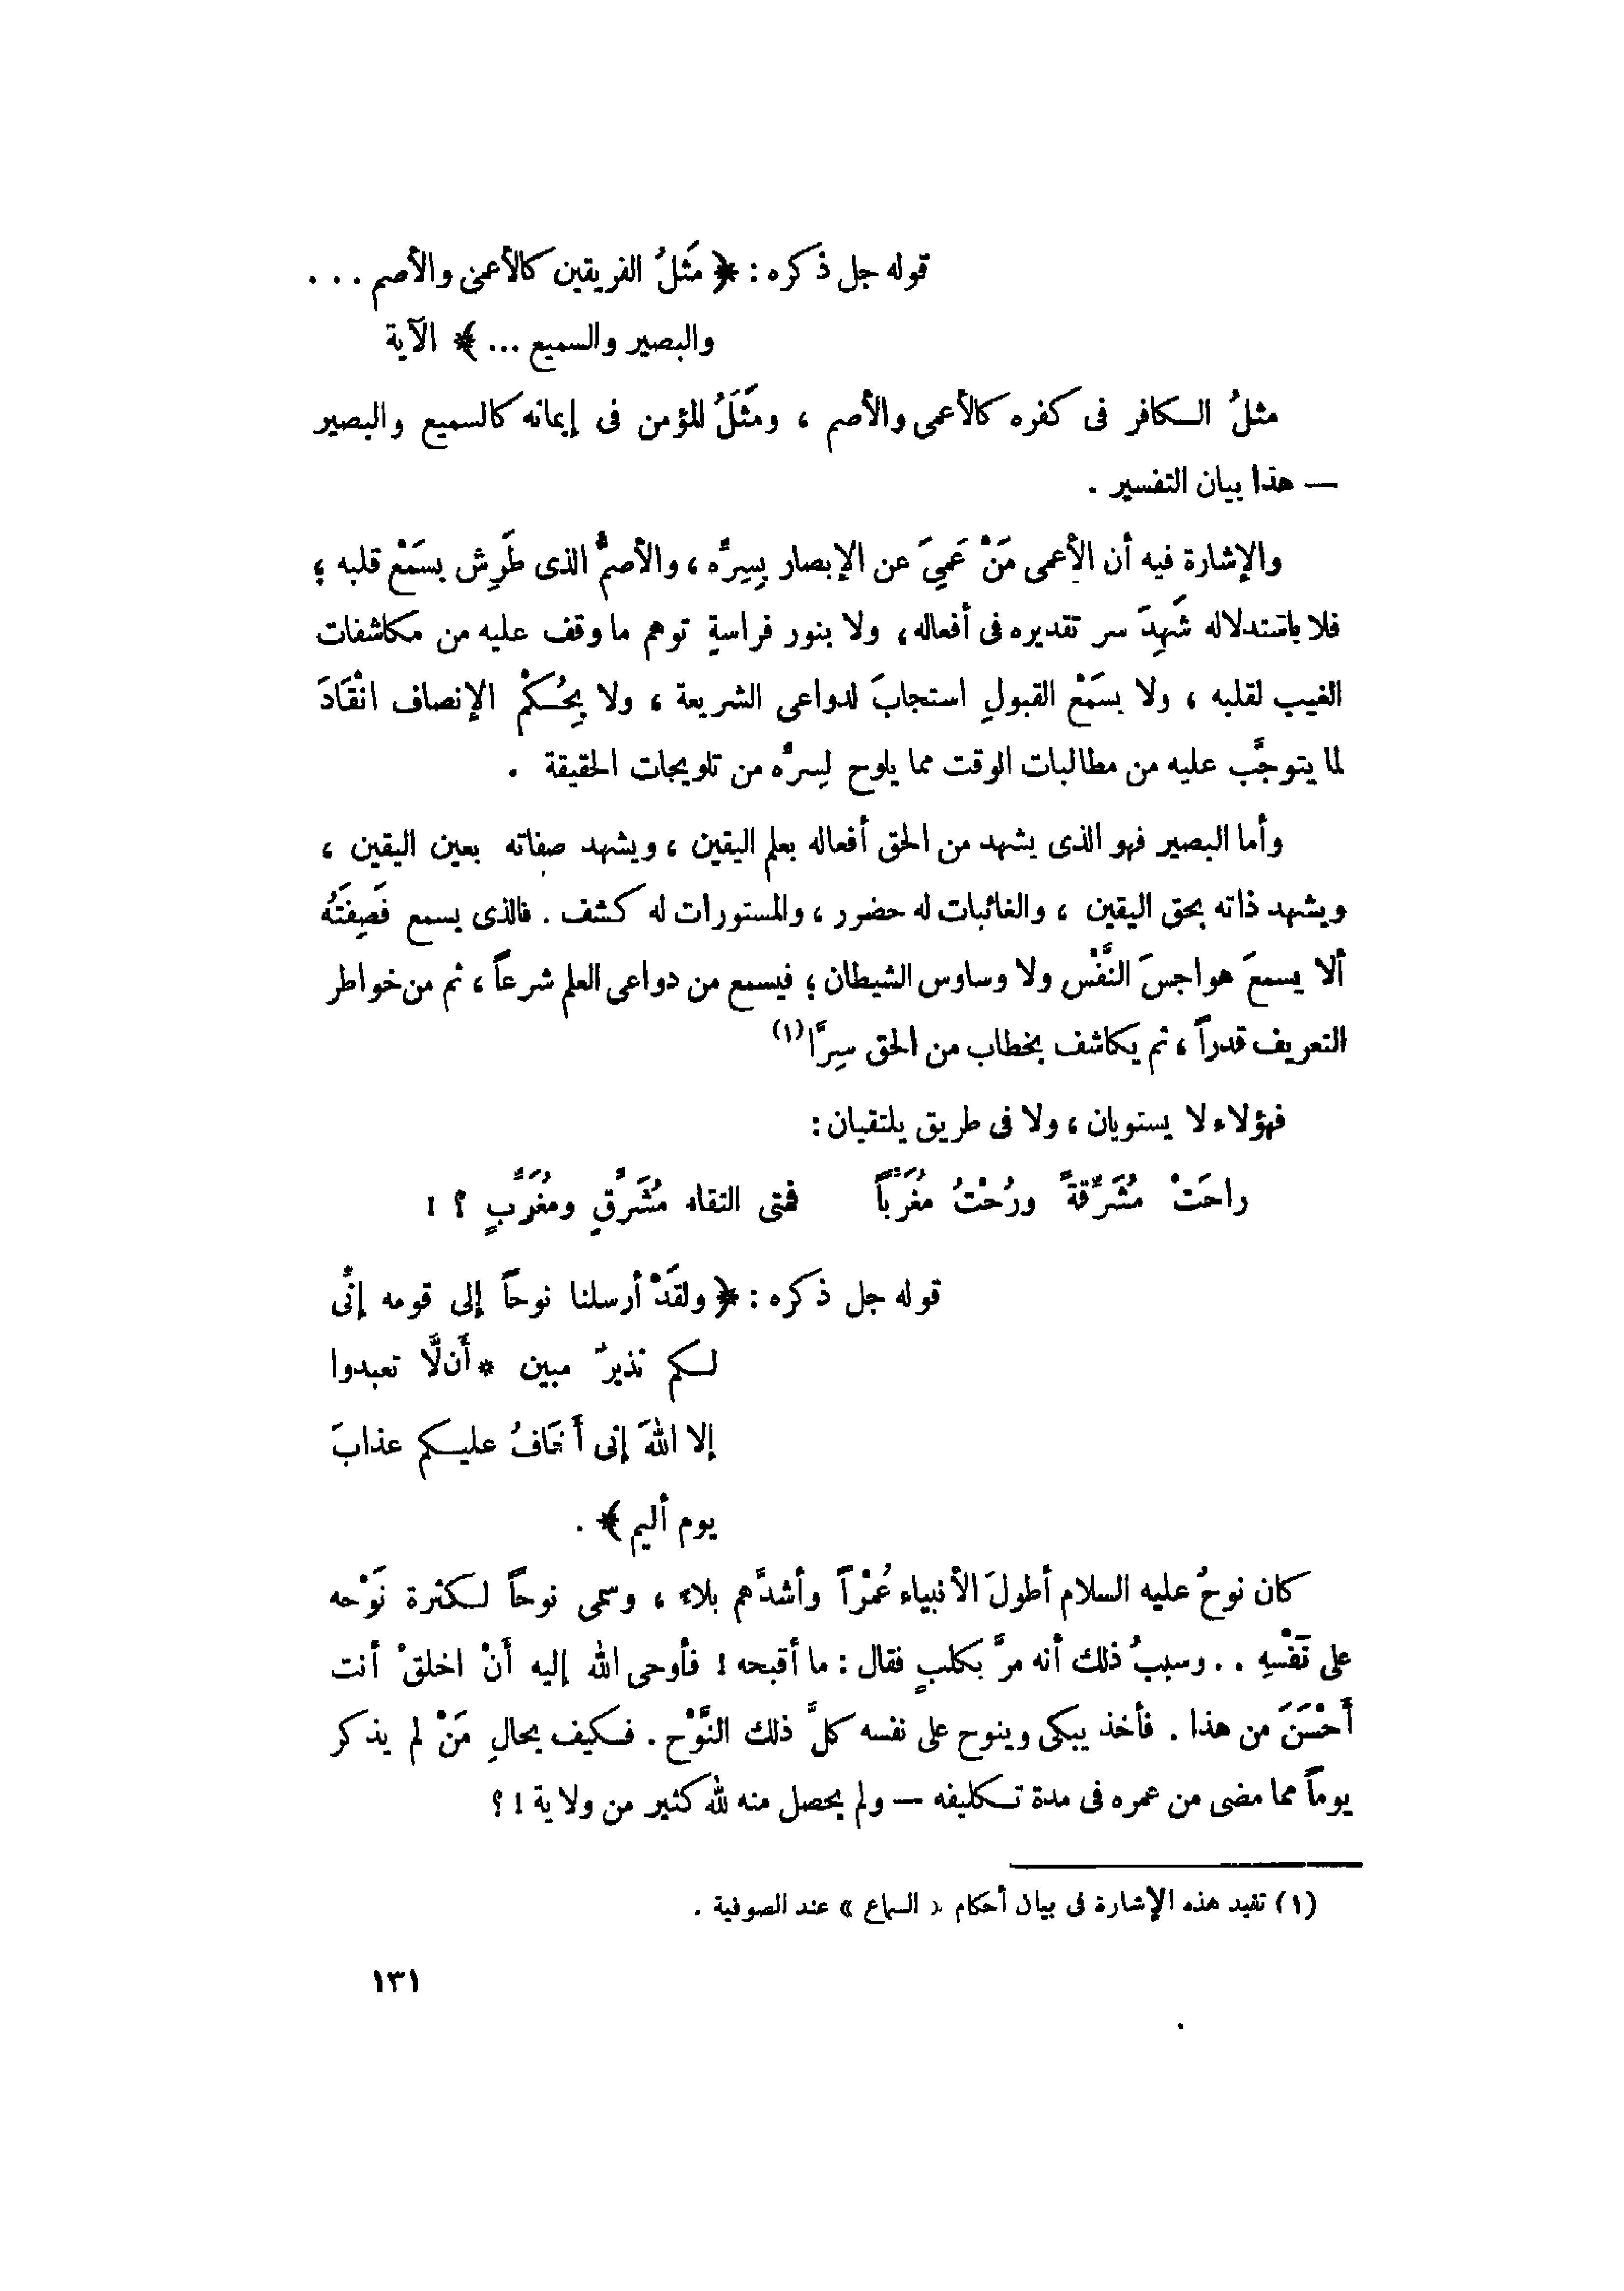 قوله جل ذكره : ﴿ مَثَلُ الفريقين كالأعمى والأصم . . .
والبصير والسميع ... ﴾ الآية
مثلُ الكافر فى كفره كالأعمى والأصم ، ومَثَلُ المؤمن فى إيمانه كالسميع والبصير
— هذا بيان التفسير .
والإشارة فيه أن الأعمى مَنْ عَمِىَ عن الإبصار بِسِرِّه ، والأصمُّ الذى طَرِش بسَمْعِ قلبه ؛
فلا باستدلاله شَهِدَ سر تقديره فى أفعاله ، ولا بنور فراسةٍ توهم ما وقف عليه من مكاشفات
الغيب لقلبه ، ولا بسَمْعِ القبولِ استجابَ لدواعى الشريعة ، ولا بِحُكْمِ الإنصاف انْقَادَ
لما يتوجَّب عليه من مطالبات الوقت مما يلوح لِسرِّه من تلويحات الحقيقة .
وأما البصير فهو الذى يشهد من الحق أفعاله بعلم اليقين ، ويشهد صفاته بعين اليقين ،
ويشهد ذاته بحق اليقين ، والغائبات له حضور ، والمستورات له كشف . فالذى يسمع فَصِفَتُه
ألا يسمعَ هواجسَ النَّفْس ولا وساوس الشيطان ؛ فيسمع من دواعى العلم شرعاً ، ثم من خواطر
التعريف قدراً ، ثم يكاشف بخطاب من الحق سِرَّا(١)
فهؤلاء لا يستويان ، ولا فى طريق يلتقيان :
راحَتْ مُشَرِّقةً ورُحْتُ مُغَرِّباً فمتى التقاء مُشَرِّقٍ ومُغَرِّبٍ ؟ !
قوله جل ذكره : ﴿ ولقَدْ أرسلنا نوحاً إلى قومه إنِّى
لكم نذيرٌ مبين * أَن لَّا تعبدوا
إلا اللهَ إنى أَخَافُ عليكم عذابَ
يوم أليم ﴾ .
كان نوحٌ عليه السلام أطولَ الأنبياء عُمْراً وأشدَّهم بلاء ، وسمى نوحاً لكثرة نَوْحه
على نَفْسِهِ . . وسببُ ذلك أنه مرَّ بكلبٍ فقال : ما أقبحه ! فأوحى الله إليه أَنْ اخلقْ أنت
أَحْسَنَ من هذا . فأخذ يبكى وينوح على نفسه كلَّ ذلك النَّوْح . فكيف بحالِ مَنْ لم يذكر
يوماً مما مضى من عمره فى مدة تكليفه — ولم يحصل منه لله كثير من ولاية ! ؟
(١) تفيد هذه الإشارة فى بيان أحكام « السماع » عند الصوفية .
١٣١